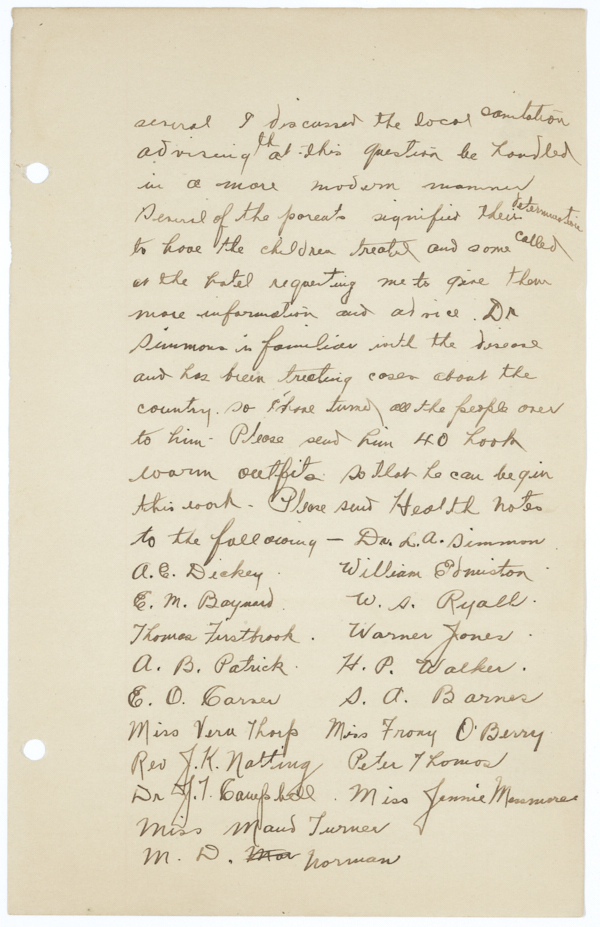 several I discussed the local sanitation
advising that this question be handled
in a more modern manner
Several of the parents signified their determination
to have the children treated and some called
at the hotel requesting me to give them
more information and advice. Dr
Simmons is familiar with the disease
and has been treating cases about the
country. so I have turned all the people over
to him. Please send him 40 hook
worm outfits so that he can begin
this work. Please send Health Notes
to the following — Dr. L. A. Simmon
A. E. Dickey. William Edmiston.
E. M. Baynard. W. S. Ryall.
Thomas Firstbrook. Warner Jones.
A. B. Patrick. H. P. Walker.
E. O. S. A. Barnes
Miss Vera Thorp Miss Frony O'Berry.
Rev J. K. Natting Peter Thomas
Dr J. T. Campbell. Miss Jennie
Miss Maud Turner
M. D. Norman